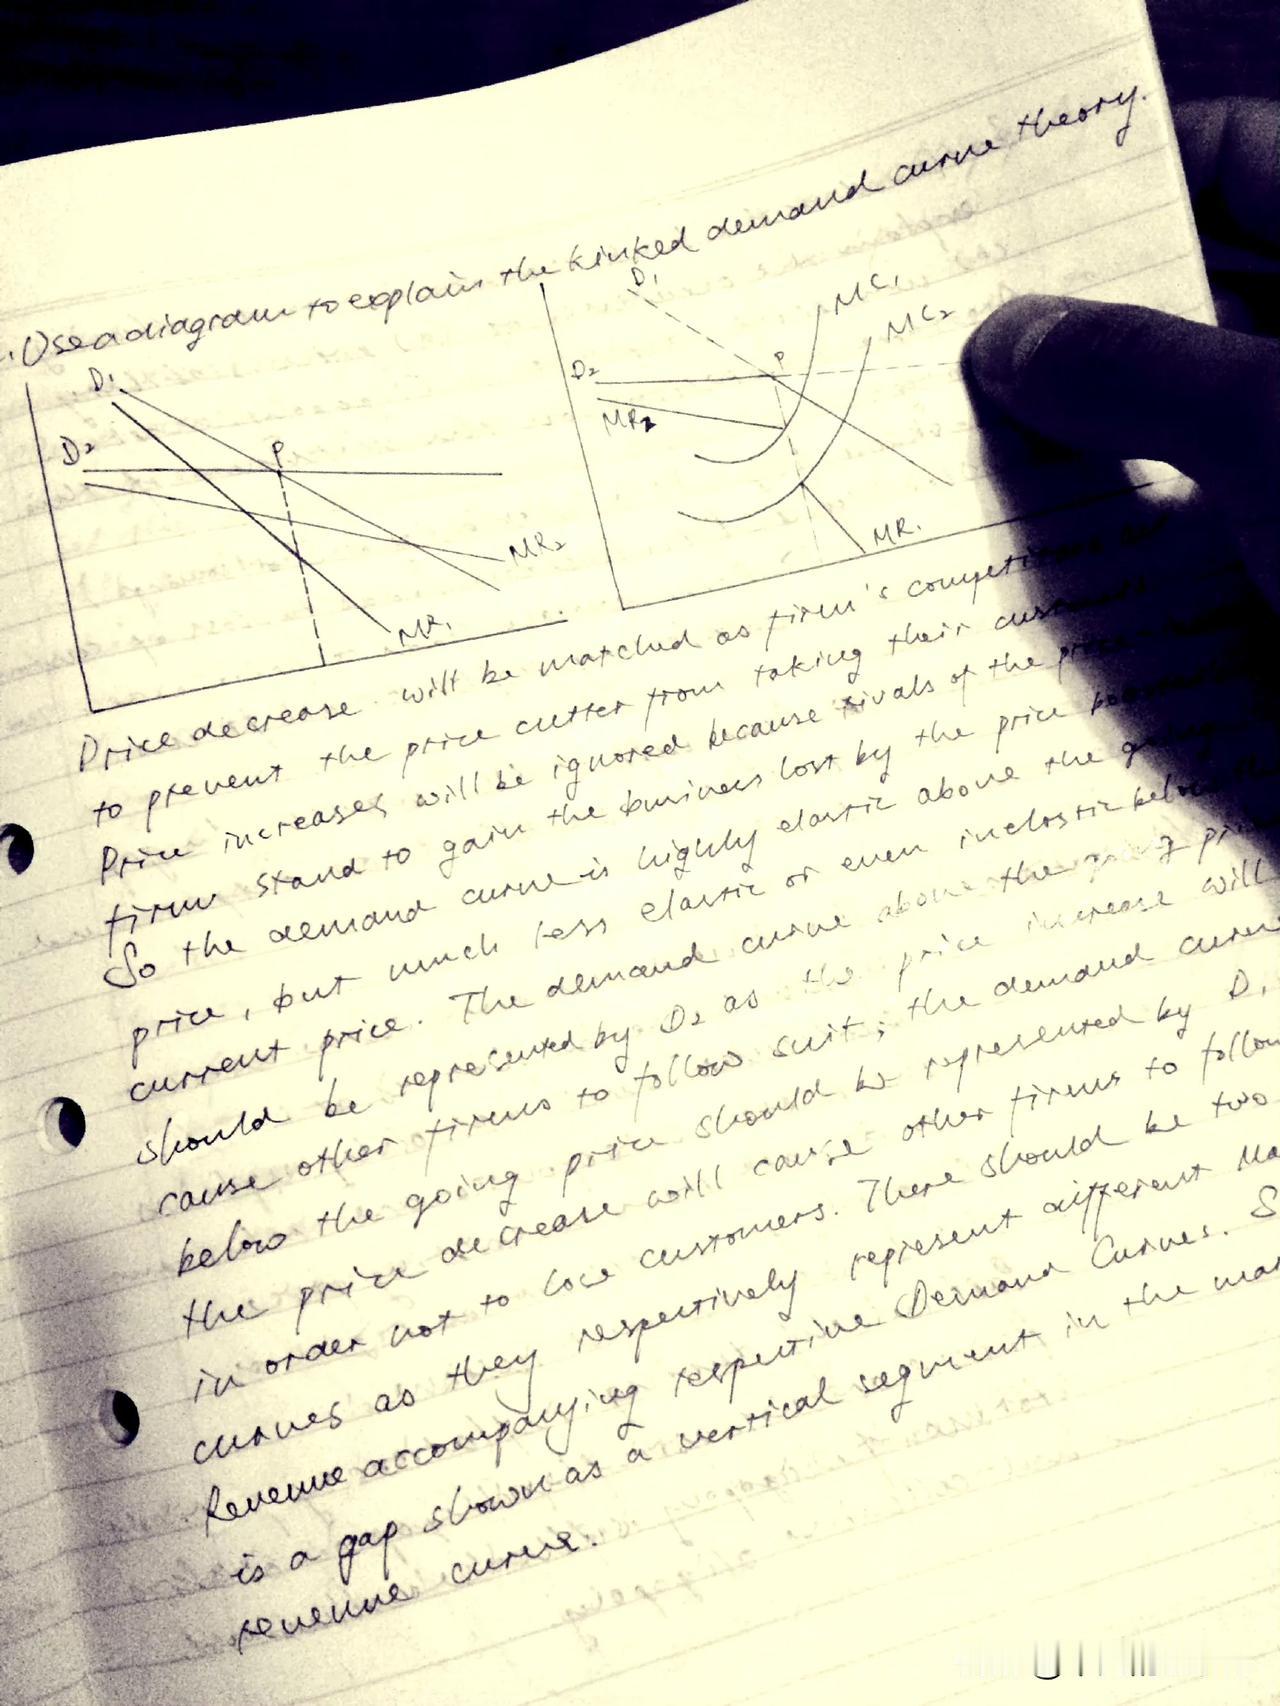 . Use a diagram to explain the kinked demand curve theory.
D1
D2
P
MR2
MR1
D1
MC1
MC2
D2
P
MR2
MR1
Price decrease will be matched as firm's competitors
to prevent the price cutter from taking their customers.
Price increases will be ignored because rivals of the
firm stand to gain the business lost by the price
So the demand curve is highly elastic above the going
price, but much less elastic or even inelastic below the
current price. The demand curve above the going
should be represented by D2 as the price increase will
cause other firms to follow suit; the demand curve
below the going price should be represented by D1
the price decrease will cause other firms to follow
in order not to lose customers. There should be two
curves as they respectively represent different
Revenue accompanying respective Demand Curves.
is a gap shown as a vertical segment in the
revenue curve.